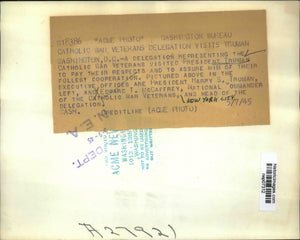 D16386 "ACME PHOTO" WASHINGTON BUREAU
CATHOLIC WAR VETERANS DELEGATION VISITS TRUMAN
WASHINGTON, D.C.-A DELEGATION REPRESENTING THE
CATHOLIC WAR VETERANS VISITED PRESIDENT TRUMAN
TO PAY THEIR RESPECTS AND TO ASSURE HIM OF THEIR
FULLEST COOPERATION. PICTURED ABOVE IN THE
EXECUTIVE OFFICES ARE PRESIDENT HARRY S. TRUMAN,
LEFT, AND EDWARD T. MCCAFFREY, NATIONAL COMMANDER
OF THE CATHOLIC WAR VETERANS, AND HEAD OF THE
DELEGATION. (NEW YORK CITY)
CREDITLINE (ACME PHOTO) 5/7/45
N.E.A.
DEPT.
ACME NEW
WASHINGTON
A2792